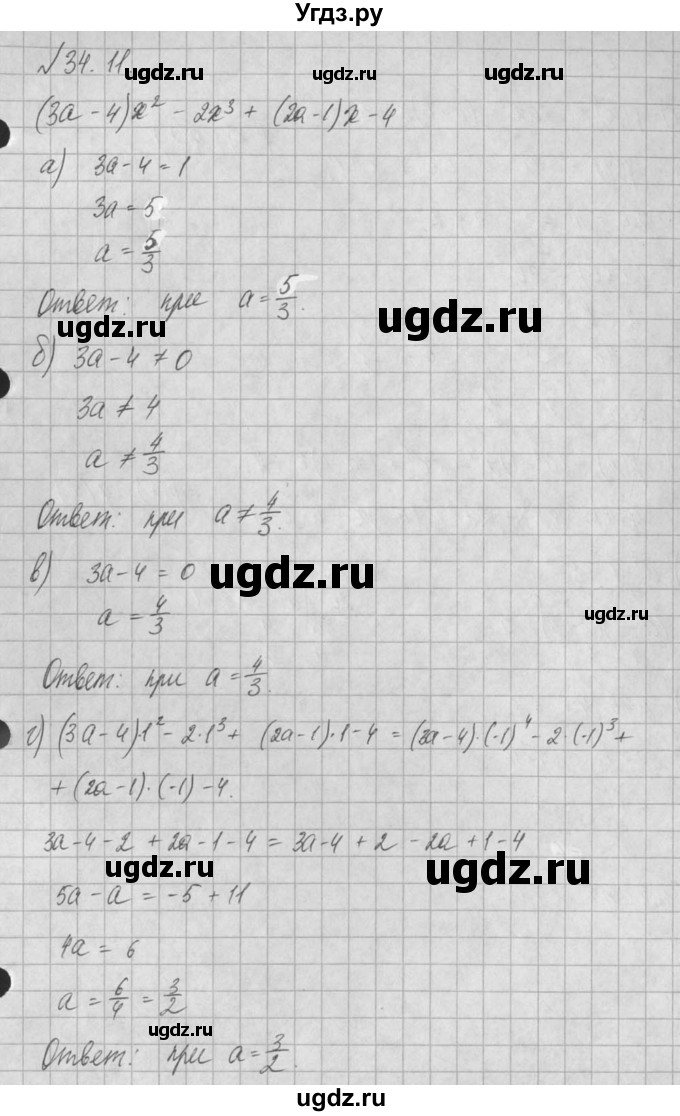 Угдз.ру
№34.11
ugdz.ru ugdz.ru ugdz.ru
(3a-4)x² - 2x³ + (2a-1)x - 4
а) 3a-4=1
3a=5
a = 5/3
Ответ: при a = 5/3.
ugdz.ru ugdz.ru
б) 3a-4≠0
3a ≠ 4
a ≠ 4/3
Ответ: при a ≠ 4/3.
в) 3a-4=0
ugdz.ru
a = 4/3
ugdz.ru
Ответ: при a = 4/3.
г) (3a-4)·1² - 2·1³ + (2a-1)·1-4 = (3a-4)·(-1)⁴ - 2·(-1)³ +
+ (2a-1)·(-1)-4.
3a-4-2+2a-1-4=3a-4+2-2a+1-4
ugdz.ru ugdz.ru
5a-a=-5+11
4a=6
a = 6/4 = 3/2
ugdz.ru
Ответ: при a = 3/2.
ugdz.ru